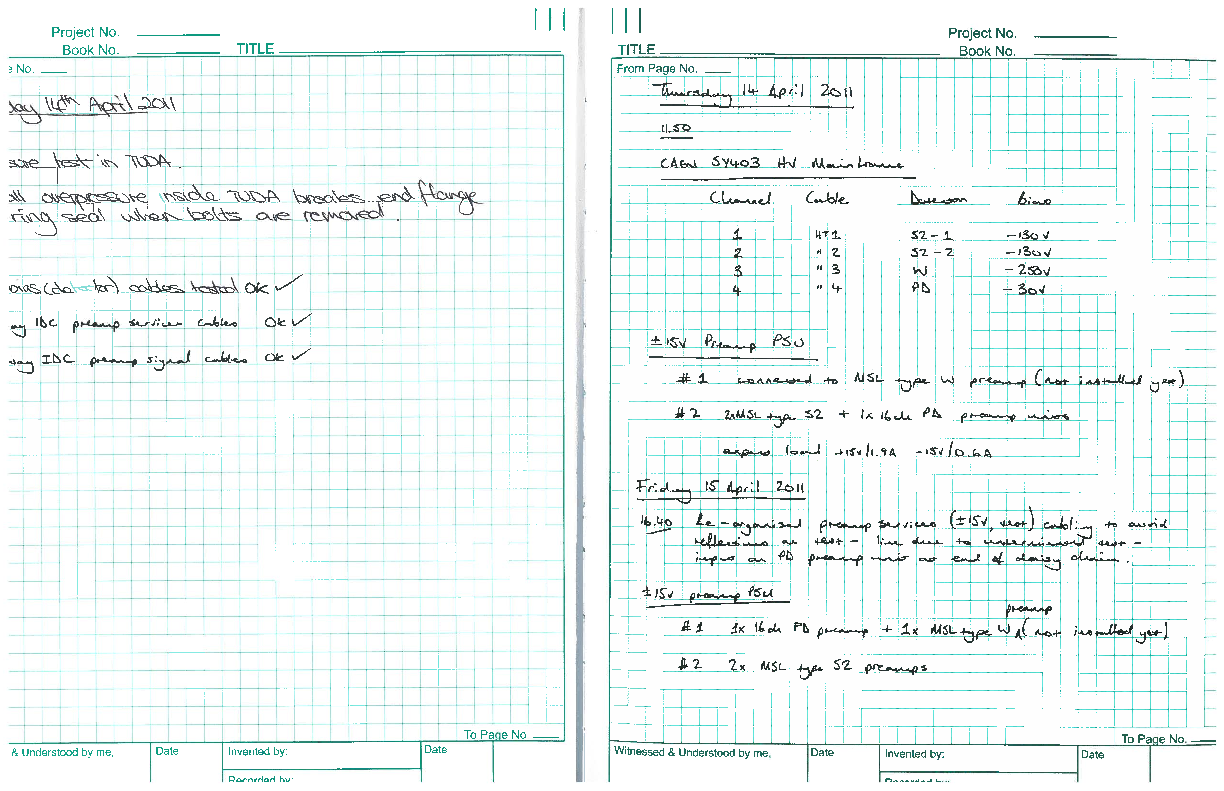 Project No.
Book No. TITLE
e No.
day 14th April 2011
sure test in TUDA.
all overpressure inside TUDA breaks end flange
ring seal when bolts are removed.
OK ✓
ay IDC preamp services cables OK ✓
way IDC preamp signal cables OK ✓
To Page No.
& Understood by me, Date Invented by: Date
Recorded by:
Project No.
TITLE Book No.
From Page No.
Thursday 14 April 2011
11.50
CAEN SY403 HV Mainframe
Channel Cable Detector bias
1 HT1 S2-1 -130V
2 " 2 S2-2 -130V
3 " 3 W -250V
4 " 4 PD -30V
±15V Preamp PSU
#1 connected to MSL type W preamp (not installed yet)
#2 2xMSL type S2 + 1x 16ch PD preamp units
expect load +15V/1.9A -15V/0.6A
Friday 15 April 2011
16.40 Re-organised preamp services (±15V, test) cabling to avoid
reflections on test - line due to unterminated test -
input on PD preamp unit at end of daisy chain.
±15V preamp PSU
preamp
#1 1x 16ch PD preamp + 1x MSL type W ∧ (not installed yet)
#2 2x MSL type S2 preamps
To Page No.
Witnessed & Understood by me, Date Invented by: Date
Recorded by: